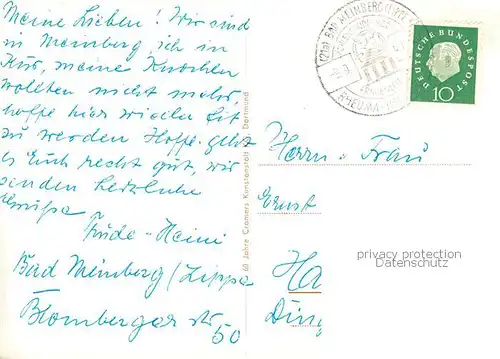 Meine Lieben! Wir sind
in Meinberg, ich in
Kur, meine Knochen
wollten nicht mehr,
hoffe hier wieder fit
zu werden. Hoffe geht
es Euch recht gut, wir
senden herzliche
Grüße
Trude - Heini
Bad Meinberg / Lippe
Blomberger Str
50
60 Jahre Cramers Kunstanstalt Dortmund
(21a) BAD MEINBERG (LIPPE)
RHEUMA
DEUTSCHE BUNDESPOST
10
Herrn u Frau
Ernst
privacy protection
Datenschutz
Ha
Ding